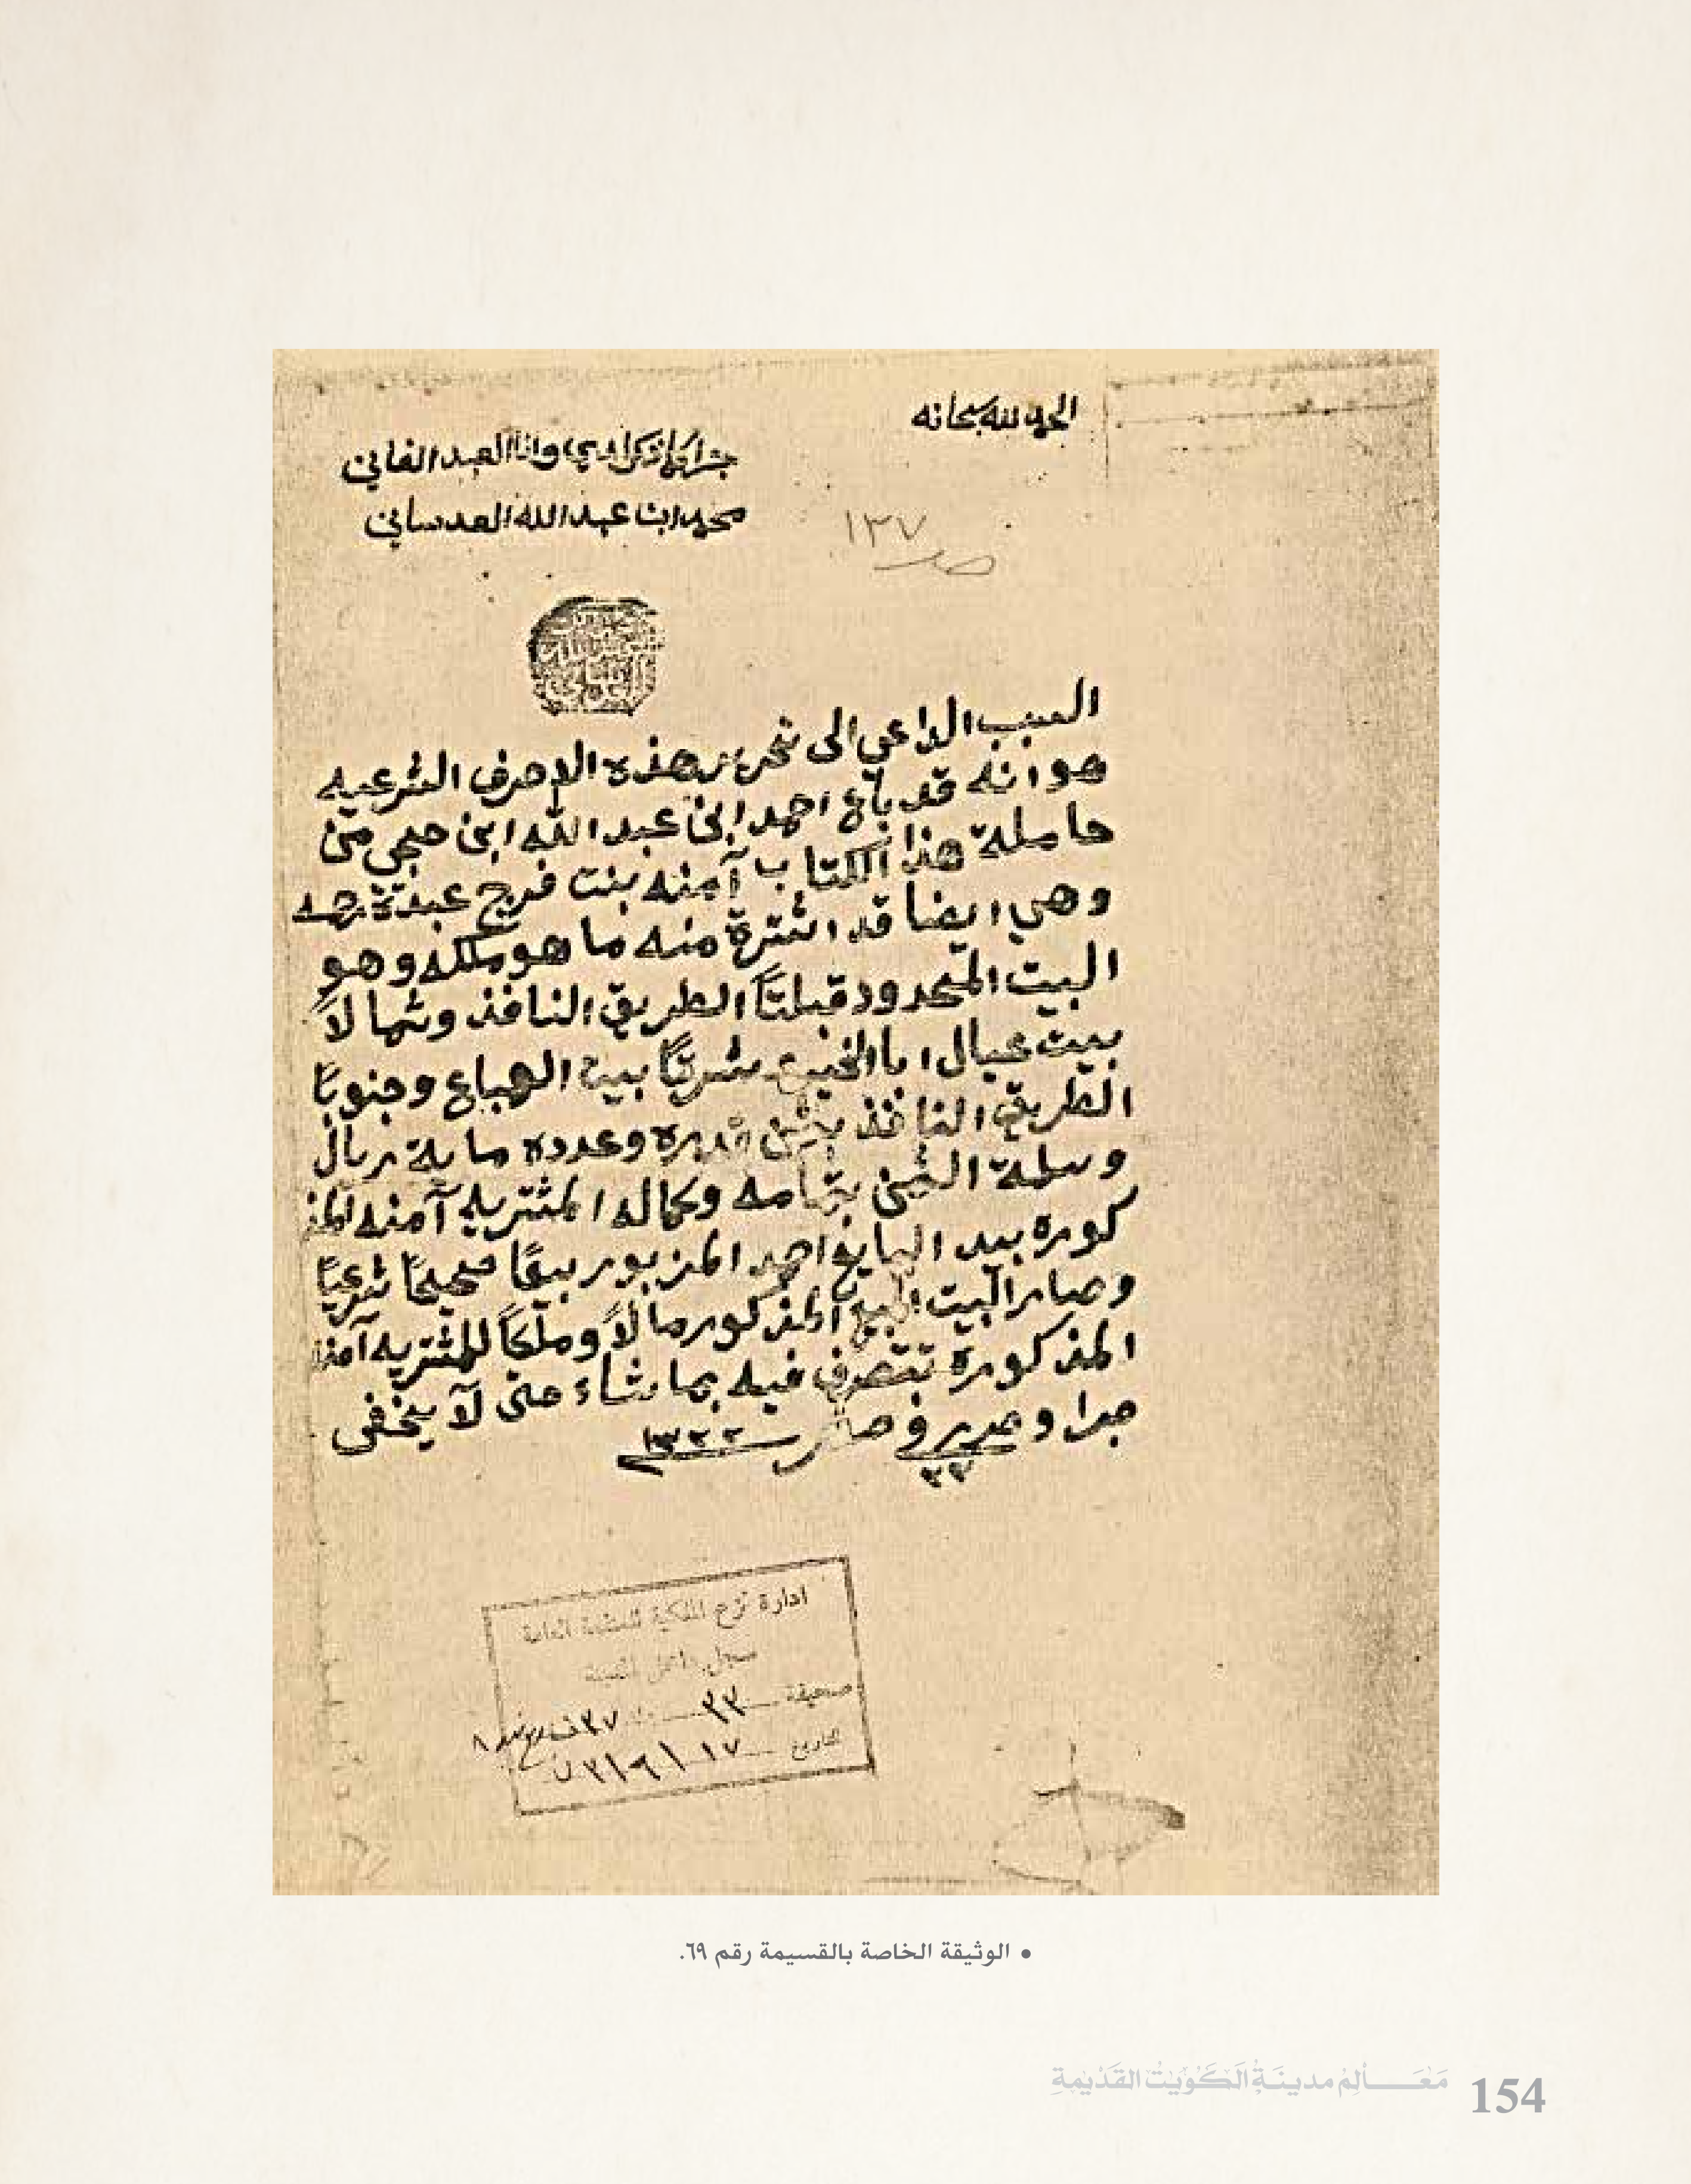 الحمد لله سبحانه
جرا كما ذكر لدي وانا العبد الفاني
محمد ابن عبد الله العدساني
١٣٧
صـ
السبب الداعي الى تحرير هذه الاحرف الشرعيه
هو انه قد باع احمد ابن عبد الله ابن حجي من
حاملة هذا الكتاب آمنه بنت فرج عبدة
وهي ايضا قد اشترة منه ما هو ملكه وهو
البيت المحدود قبلتاً الطريق النافذ وشمالاً
بيت عيال ابا الخيع شرقاً بيت الصباع وجنوباً
الطريق النافذ بثمن قدره وعدده ماية ريال
وسلمة الثمن بتمامه وكماله المشتريه آمنه المذ
كوره بيد البايع احمد المزبور بيعاً صحيحاً شرعياً
وصار البيت المبيع المذكور مالاً وملكاً للمشتريه آمنه
المذكوره تتصرف فيه بما تشاء حتى لا يخفى
جرا وحرر في صفر ١٣٢٢
٢٢
ادارة نزع الملكية للمنفعة العامة
سجل
صحيفة ٣٣ ٣٧
التاريخ ١٧
• الوثيقة الخاصة بالقسيمة رقم ٦٩.
مَعَـــالِمُ مدينَةِ الكُوَيْتِ القَدْيمَةِ 154